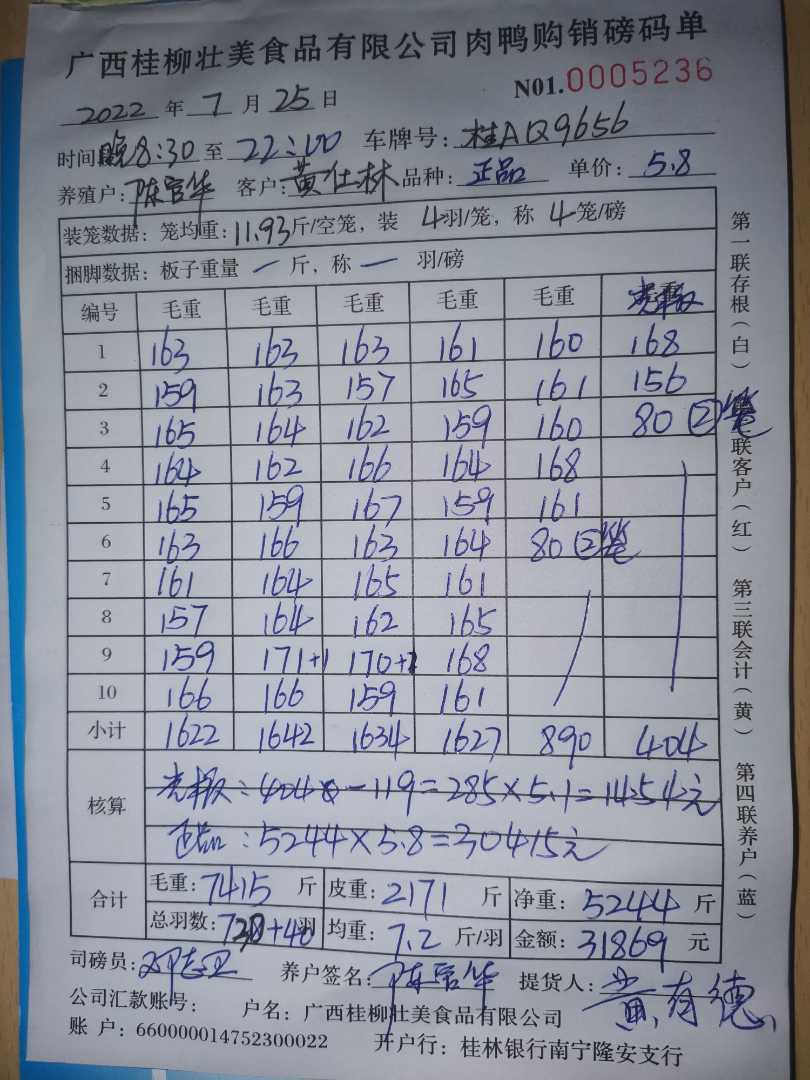 广西桂柳壮美食品有限公司肉鸭购销磅码单
2022 年 7 月 25 日 N01.0005236
时间 晚8:30 至 22:00 车牌号: 桂AQ9656
养殖户: 陈官华 客户: 黄仕林 品种: 正品 单价: 5.8
装笼数据: 笼均重: 11.93 斤/空笼, 装 4 羽/笼, 称 4 笼/磅
捆脚数据: 板子重量 一 斤, 称 一 羽/磅
编号 毛重 毛重 毛重 毛重 毛重
1 163 163 163 161 160 168
2 159 163 157 165 161 156
3 165 164 162 159 160 80 ②笼
4 164 162 166 164 168
5 165 159 167 159 161
6 163 166 163 164 80 ②笼
7 161 164 165 161
8 157 164 162 165
9 159 171+1 170+1 168
10 166 166 159 161
小计 1622 1642 1634 1627 890 404
核算
: 404 -119=285×5.1=1454元
正品:5244×5.8=30415元
合计 毛重: 7415 斤 皮重: 2171 斤 净重: 5244 斤
总羽数: 728+40 羽 均重: 7.2 斤/羽 金额: 31869 元
司磅员: 养户签名: 陈官华 提货人: 黄有德
公司汇款账号: 户名: 广西桂柳壮美食品有限公司
账 户: 660000014752300022 开户行: 桂林银行南宁隆安支行
第一联存根(白) 联客户(红) 第三联会计(黄) 第四联养户(蓝)